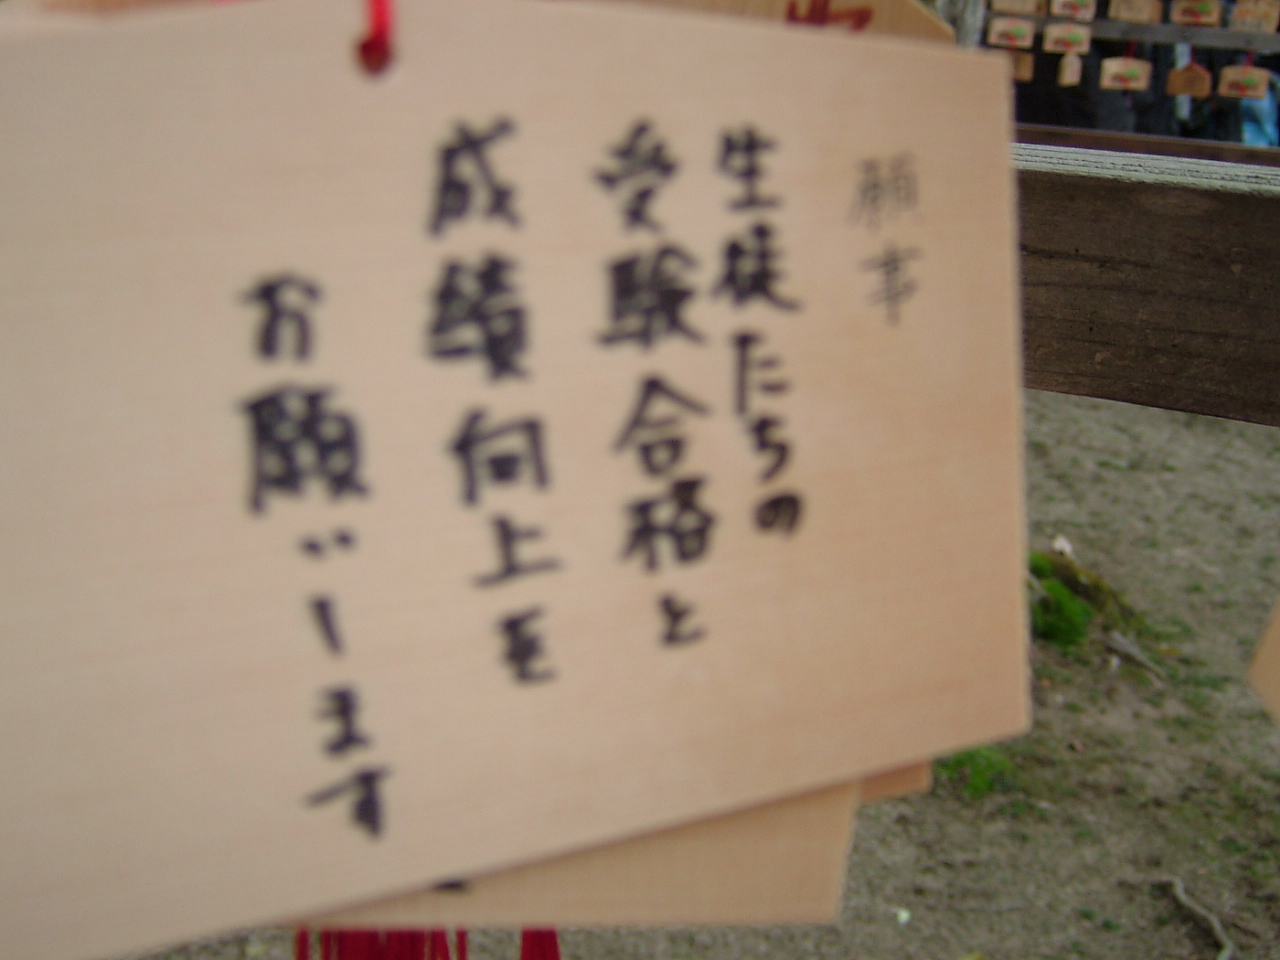 願事
生徒たちの
受験合格と
成績向上を
お願いします